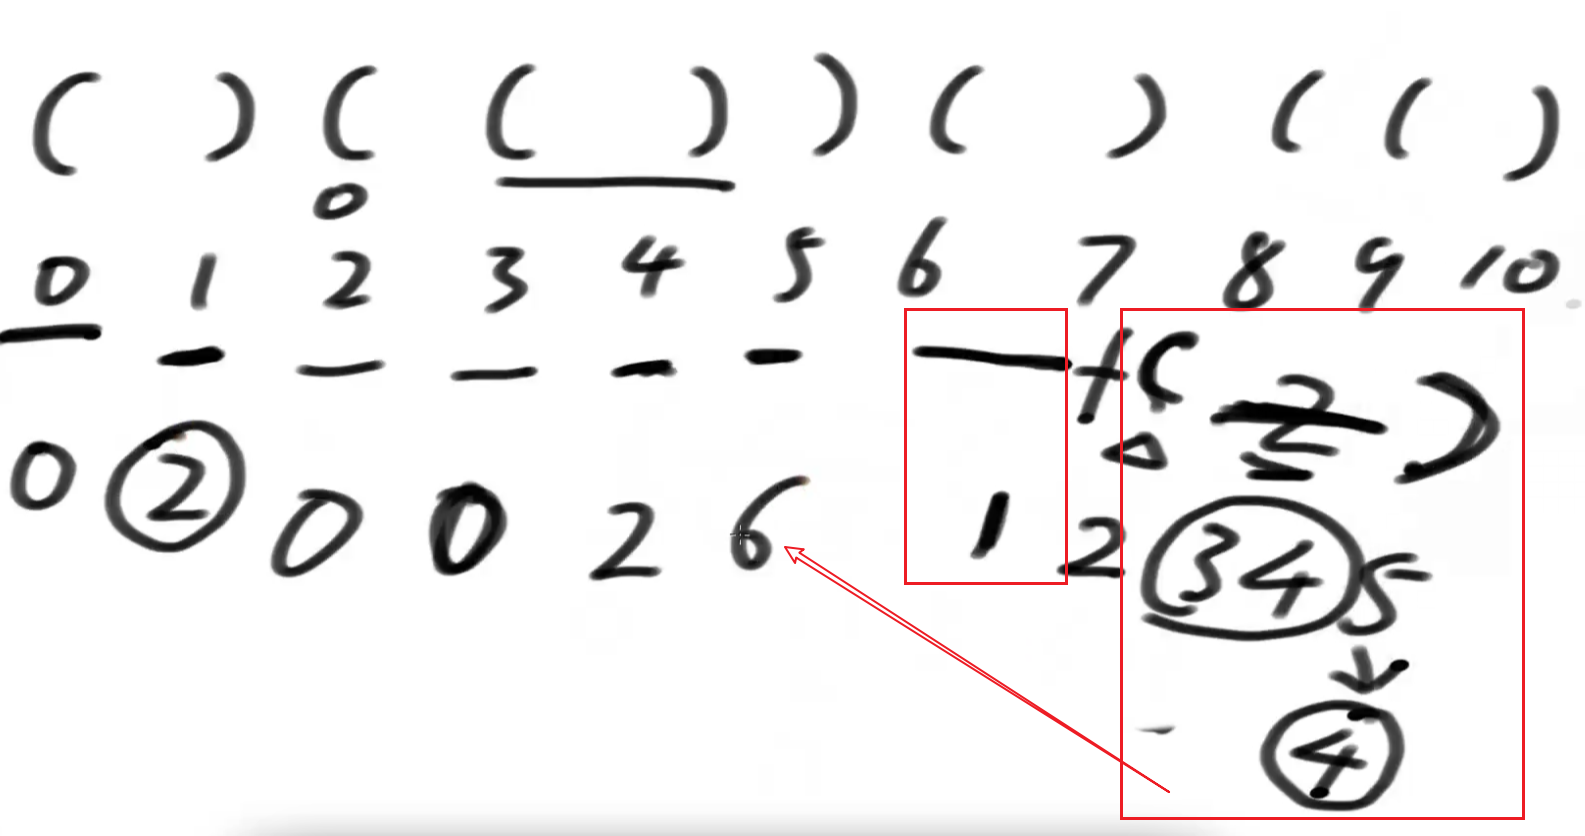 ( ) ( ( ) ) ( ) ( ( )
0
0 1 2 3 4 5 6 7 8 9 10
( 2 )
0 2 0 0 2 6 1 2 3 4 5
4